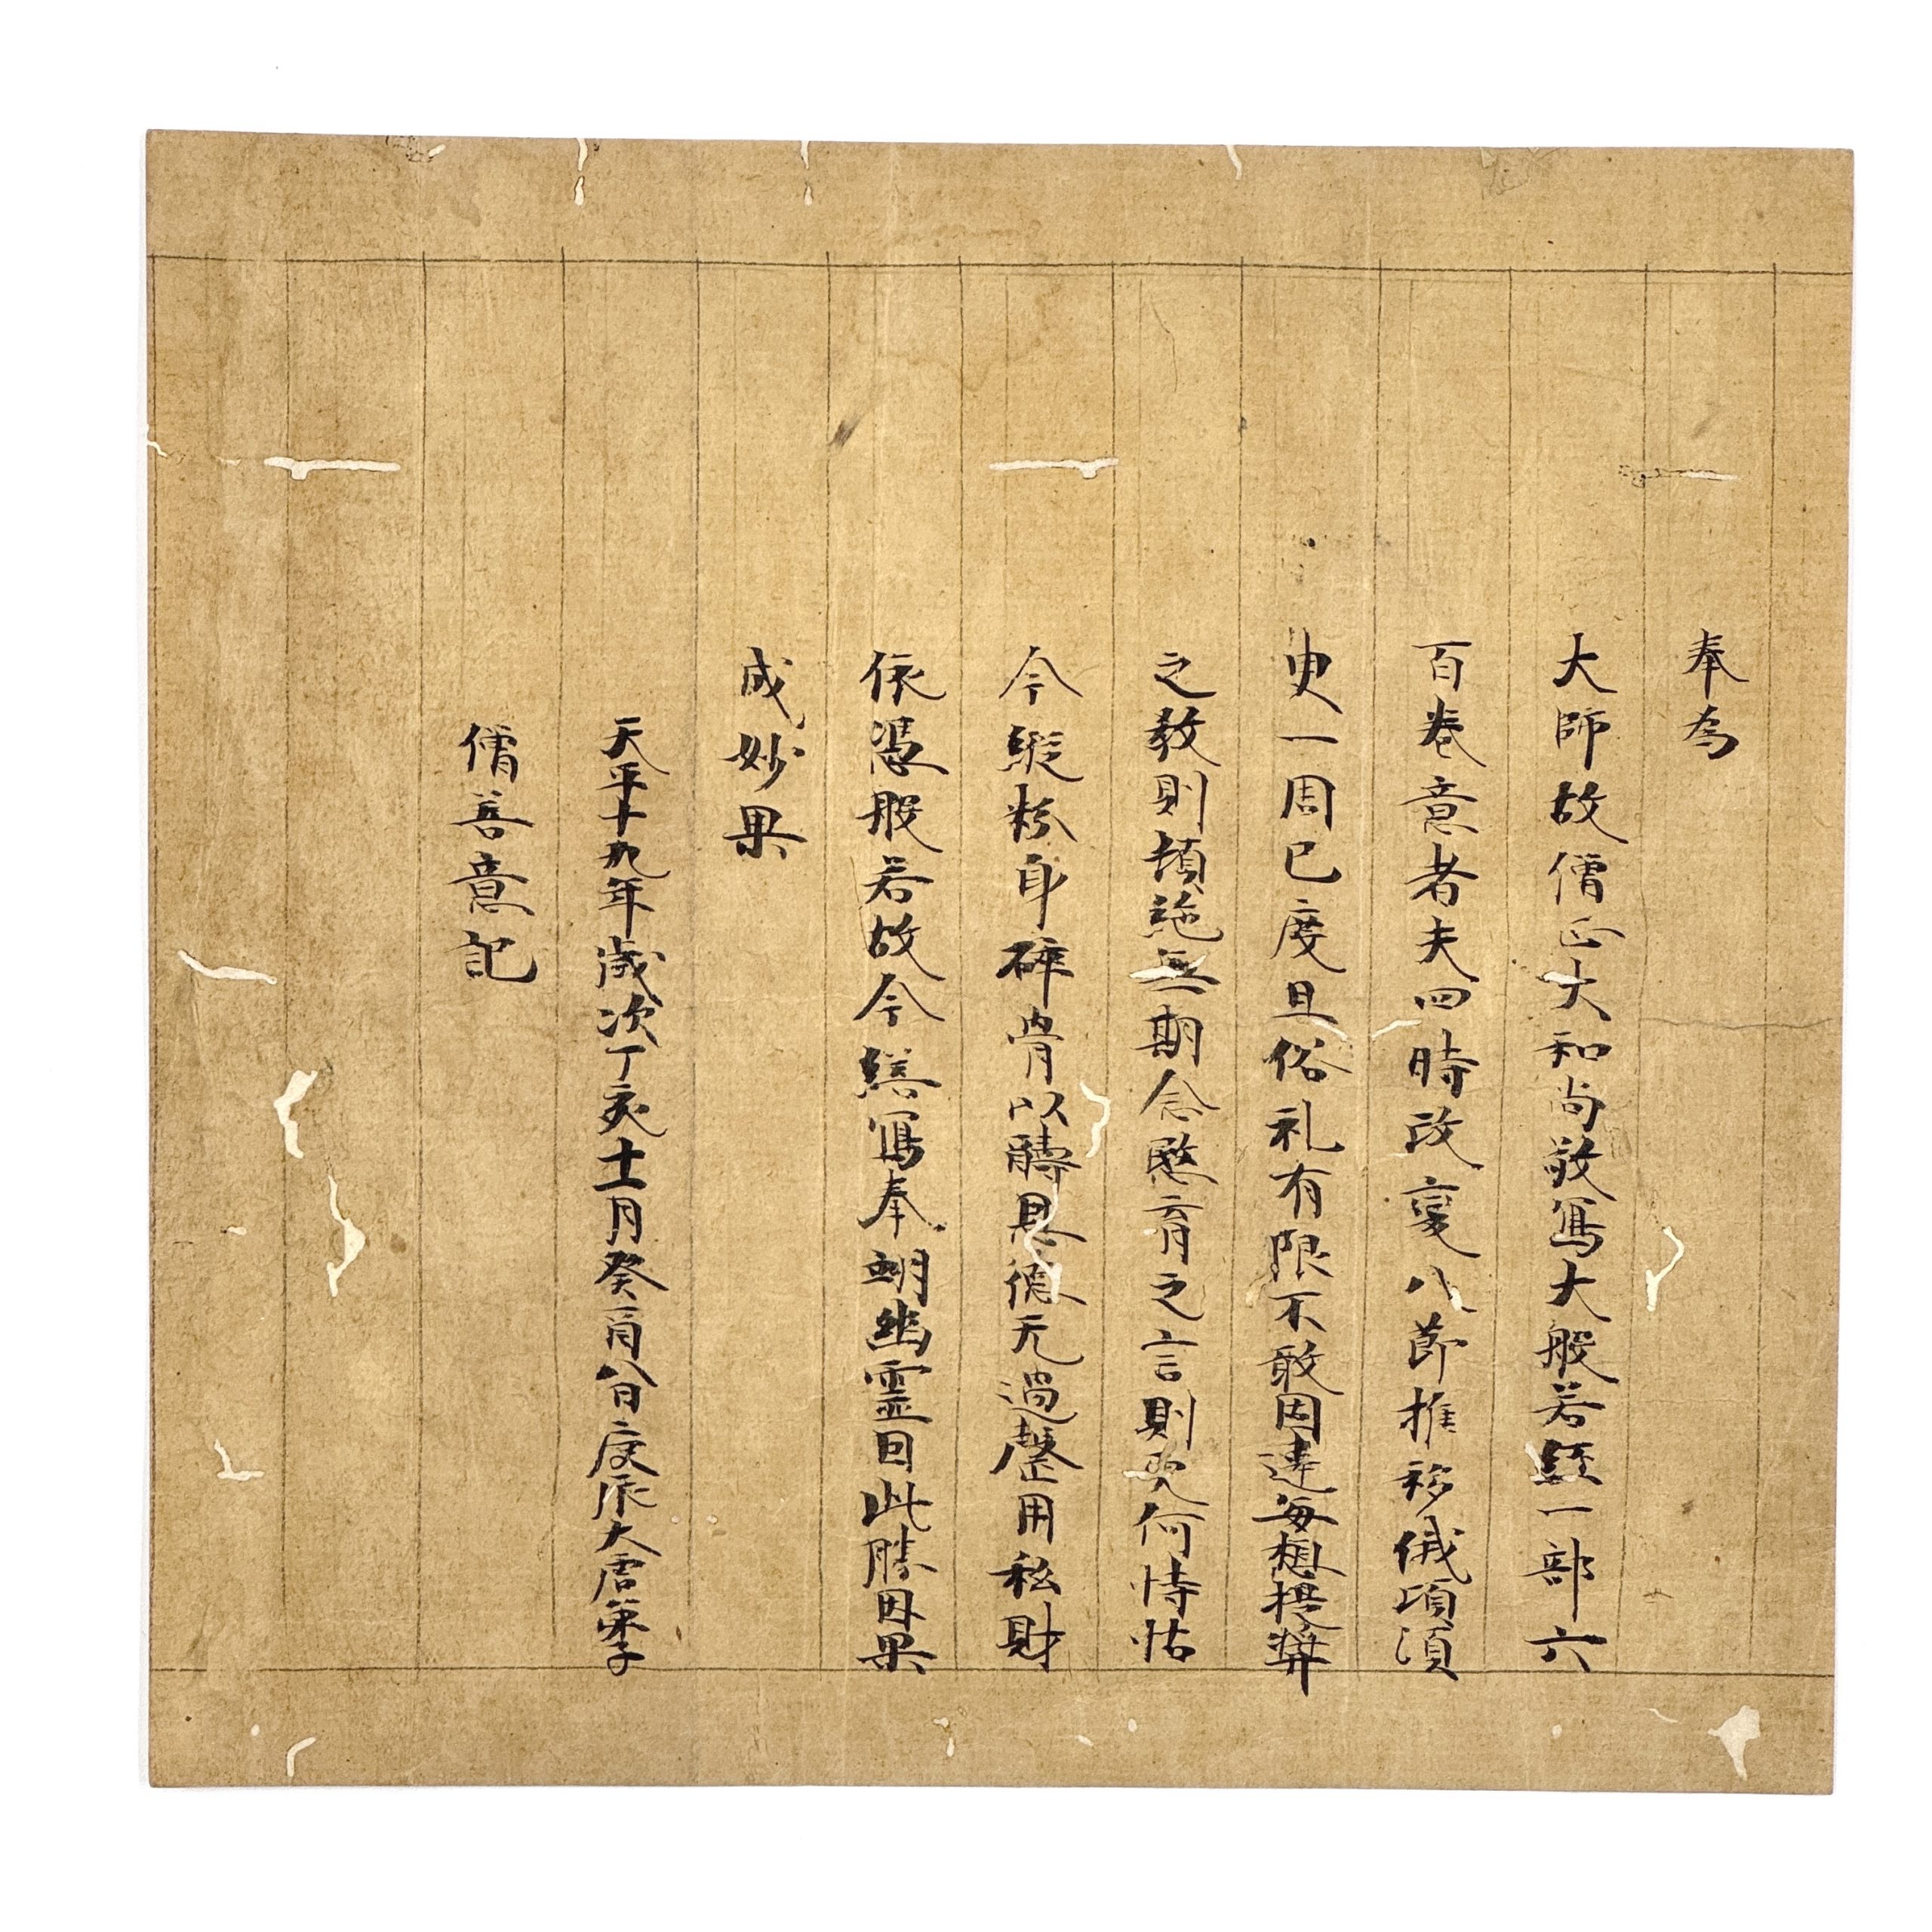 奉為
大師故僧正大和尚敬寫大般若經一部六
百卷意者夫四時改変八節推移俄頃須
臾一周已度且俗礼有限不敢因違每想提奬
之教則頓絶無期念慜育之言則更何恃怙
今縱粉身碎骨以酬恩德无過罄用私財
依憑般若故今繕寫奉翊幽霊因此勝因果
成妙果
天平十九年歲次丁亥十一月癸酉八日庚辰大唐弟子
僧善意記